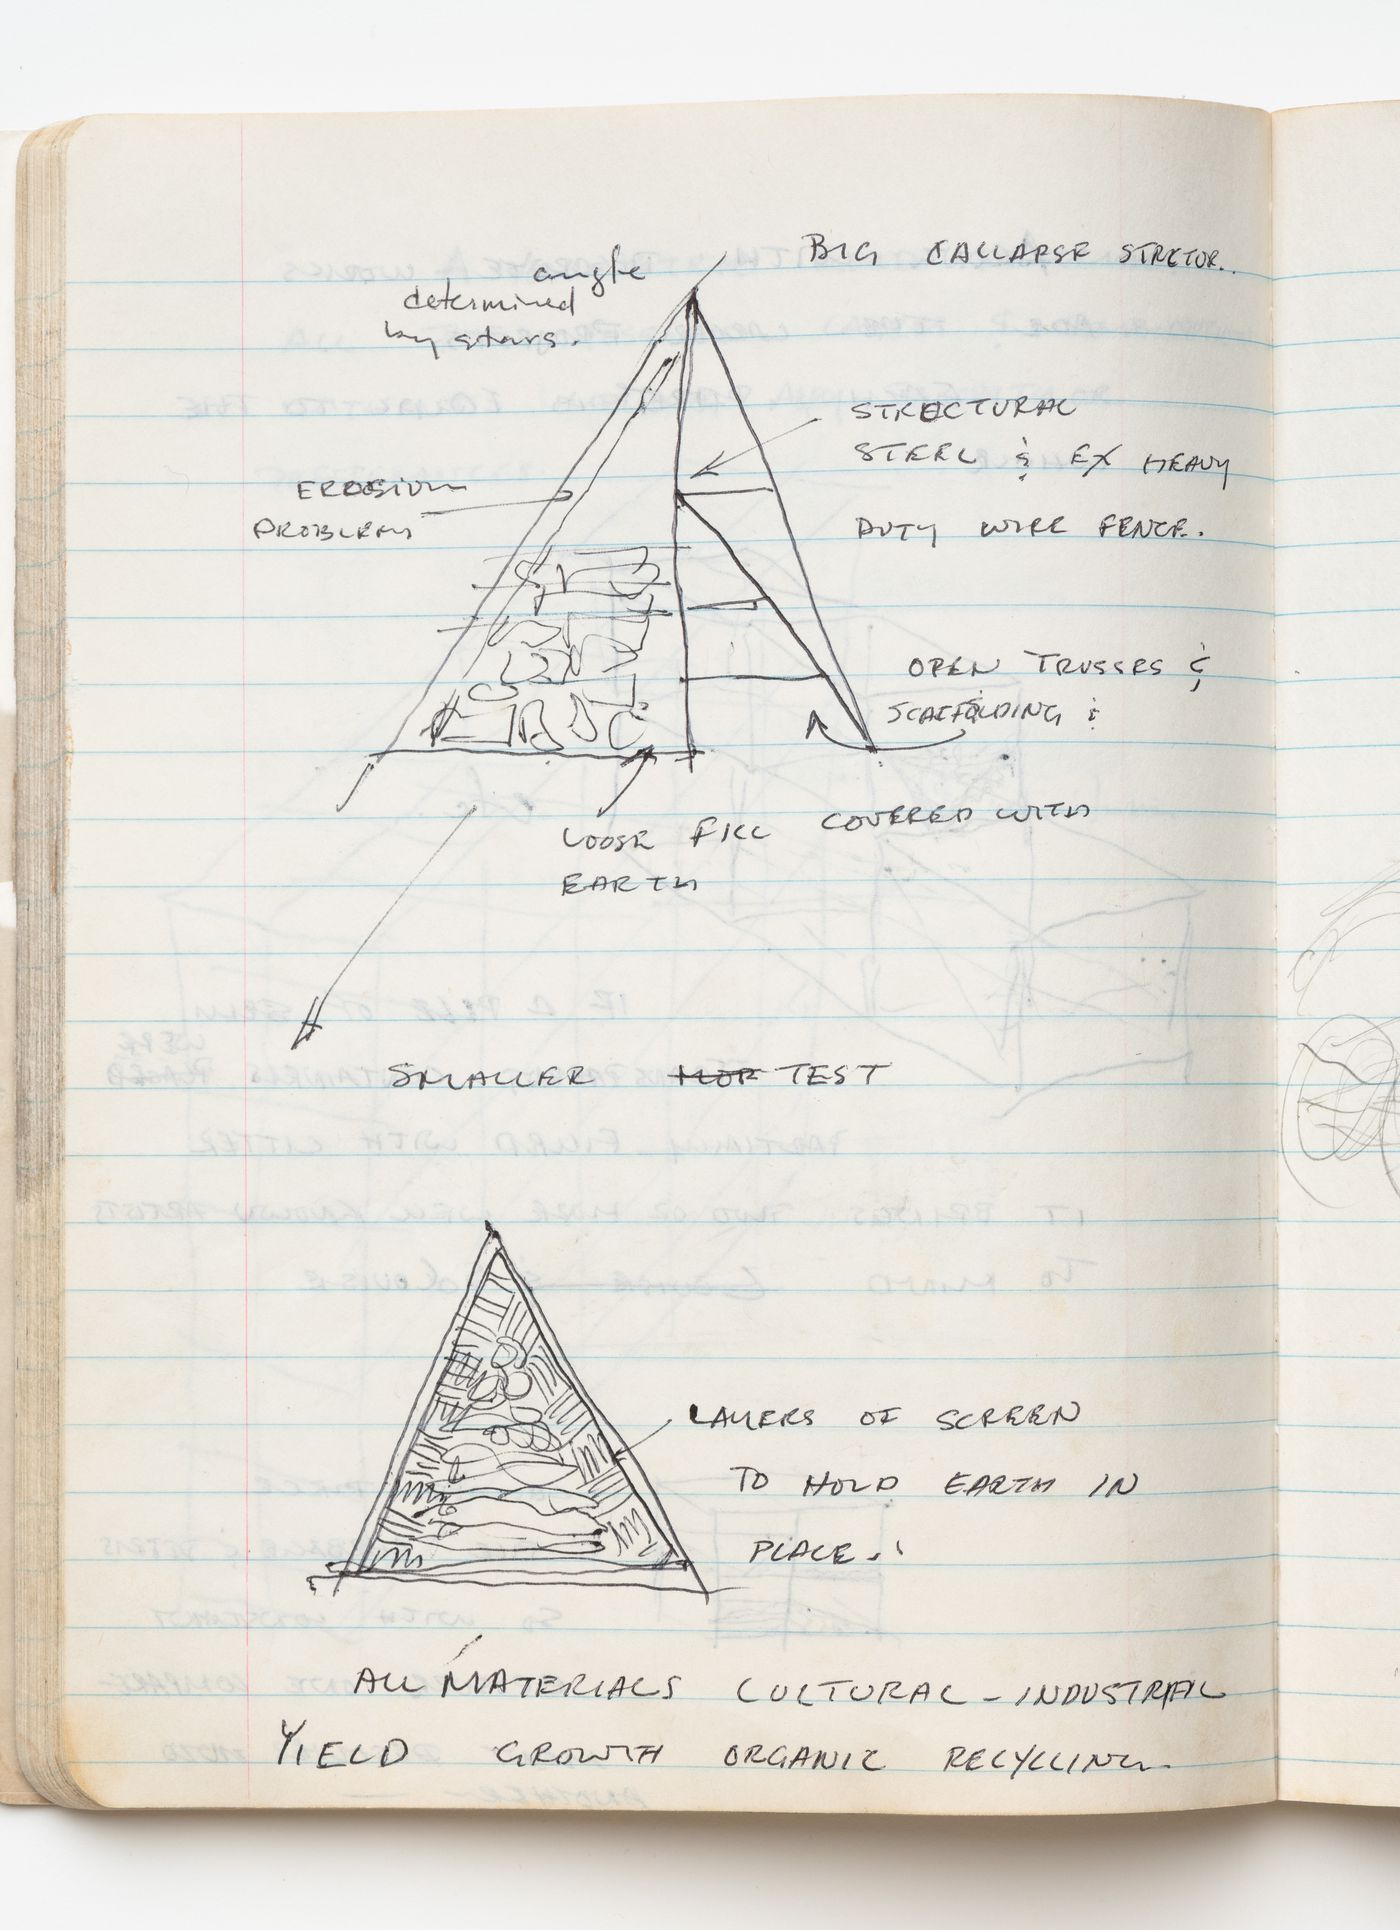 BIG CALLAPSE STRCTUR..
angle
determined
by stars.
STRUCTURAL
STEEL & EX HEAVY
DUTY WIRE FENCE.
EROSIUM
PROBLEM
OPEN TRUSSES &
SCAFFOLDING &
LOOSE FILL COVERED WITH
EARTH
SMALLER TEST
LAYERS OF SCREEN
TO HOLD EARTH IN
PLACE.
ALL MATERIALS CULTURAL - INDUSTRIAL
YIELD GROWTH ORGANIC RECYCLING.